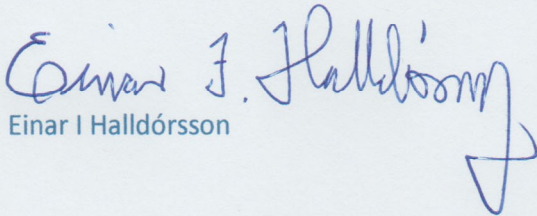 Einar I. Halldórsson
Einar I Halldórsson